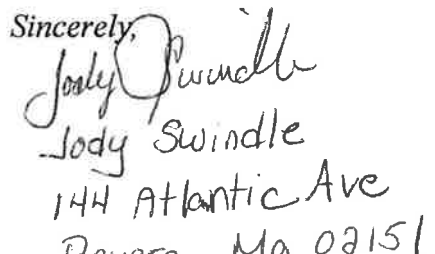 Sincerely,
Jody Swindle
Jody Swindle
144 Atlantic Ave
Revere Ma 02151